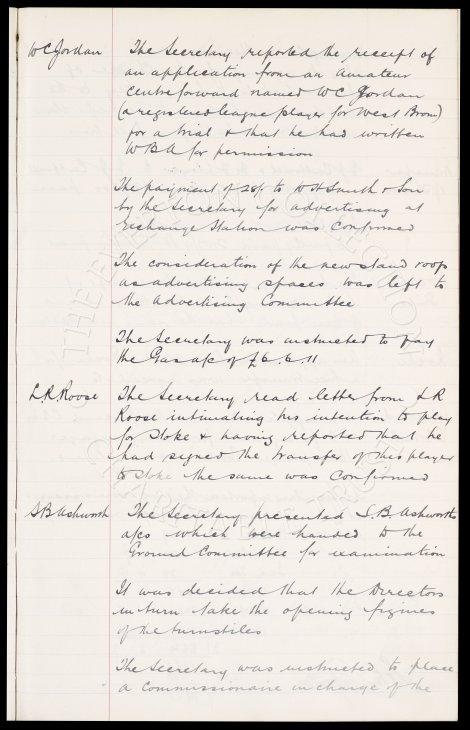 W C Jordan
The Secretary reported the receipt of
an application from an amateur
centreforward named W C Jordan
(a registered league player for West Brom)
for a trial & that he had written
W B A for permission
The payment of 28/- to W H Smith & Son
by the Secretary for advertising at
Exchange Station was confirmed
The consideration of the new stand roofs
as advertising spaces was left to
the Advertising Committee
The Secretary was instructed to pay
the Gas a/c of £6.6.11
L R Roose
The Secretary read letter from L R
Roose intimating his intention to play
for Stoke & having reported that he
had signed the transfer of this player
to Stoke the same was confirmed
S B Ashworth
The Secretary presented S.B. Ashworths
a/cs which were handed to the
Ground Committee for examination
It was decided that the Directors
in turn take the opening figures
of the turnstiles
The Secretary was instructed to place
a commissionaire in charge of the